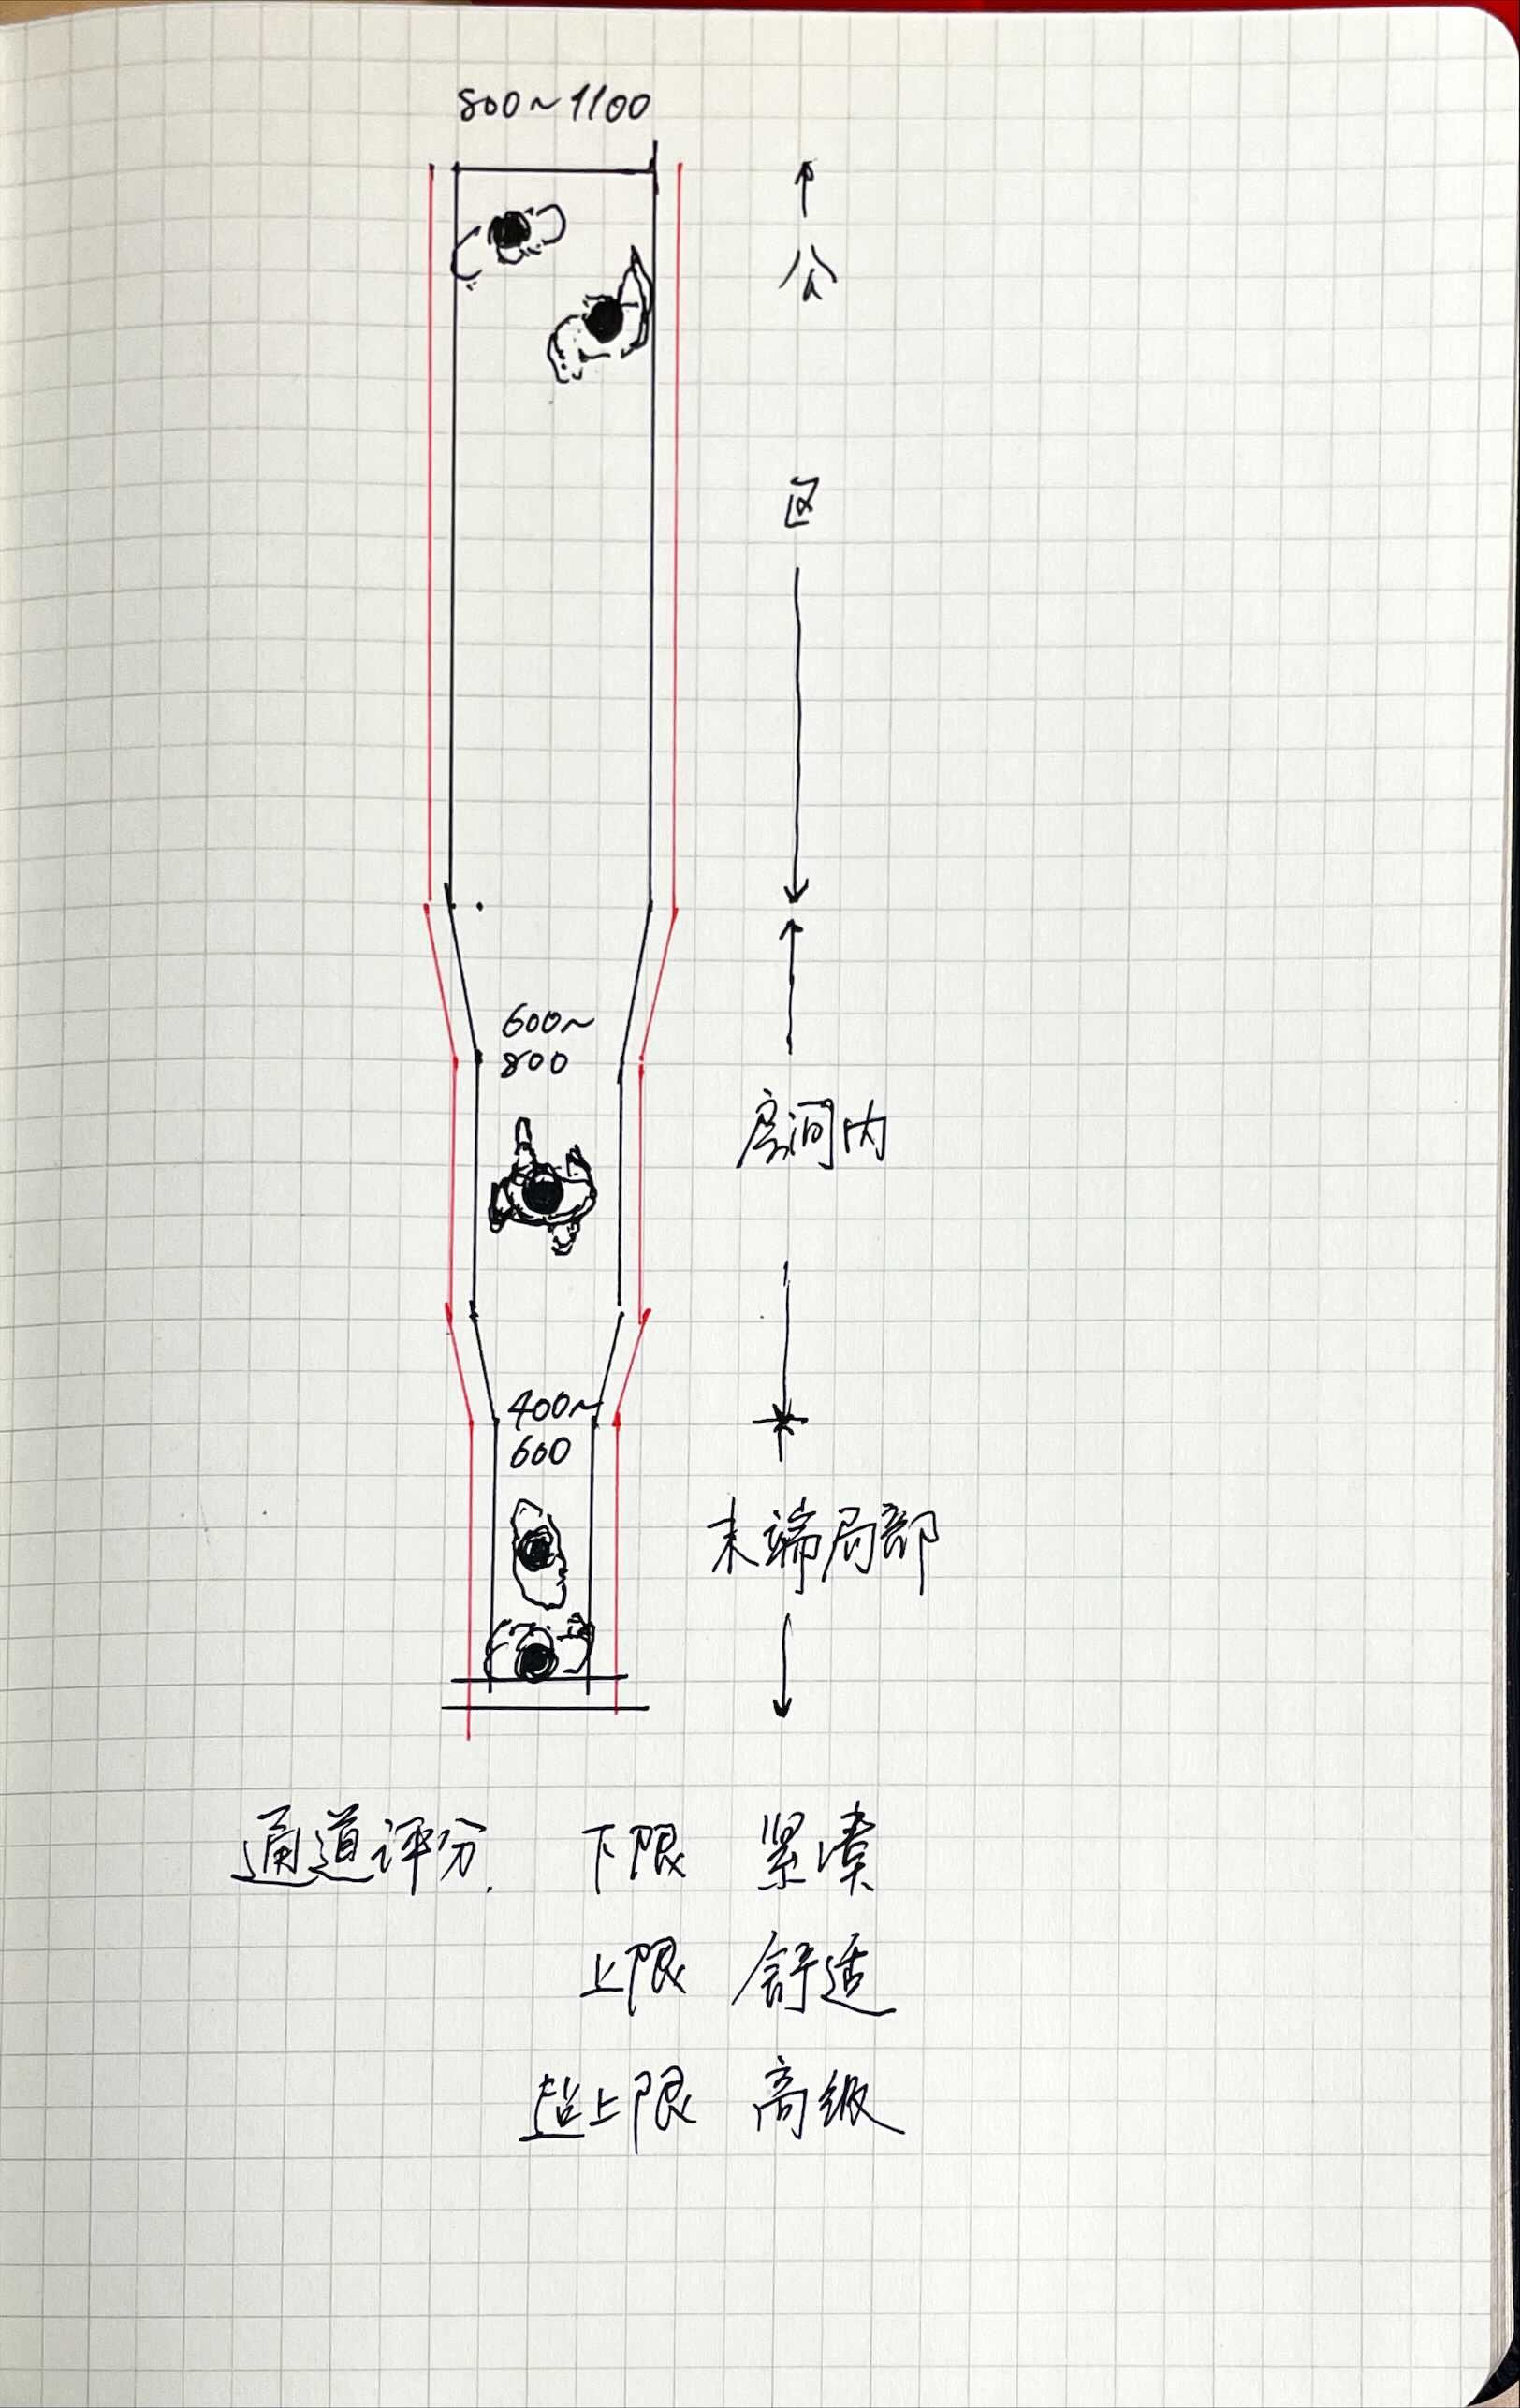 800~1100
公
区
600~
800
房间内
400~
600
末端局部
通道评分. 下限 紧凑
上限 舒适
超上限 高级